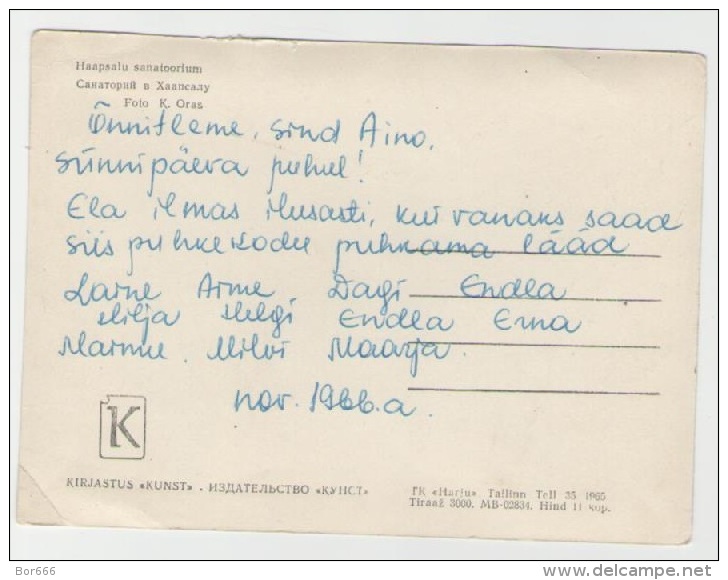 Haapsalu sanatoorium
Санаторий в Хаапсалу
Foto K. Oras
Õnnitleme, sind Aino,
sünnipäeva puhul!
Ela ilmas ilusasti, kui vanaks saad
siis puhkekodu puhkama lääd
Laine Arme Dagi Endla
Hilja Helgi Endla Erna
Marmu. Milvi Maarja.
nov. 1966.a.
K
KIRJASTUS «KUNST» . ИЗДАТЕЛЬСТВО «КУНСТ»
TK «Harju» Tallinn Tell 35 1965
Tiraaž 3000. MB-02834. Hind 11 kop.
Bor666
www.delcampe.net